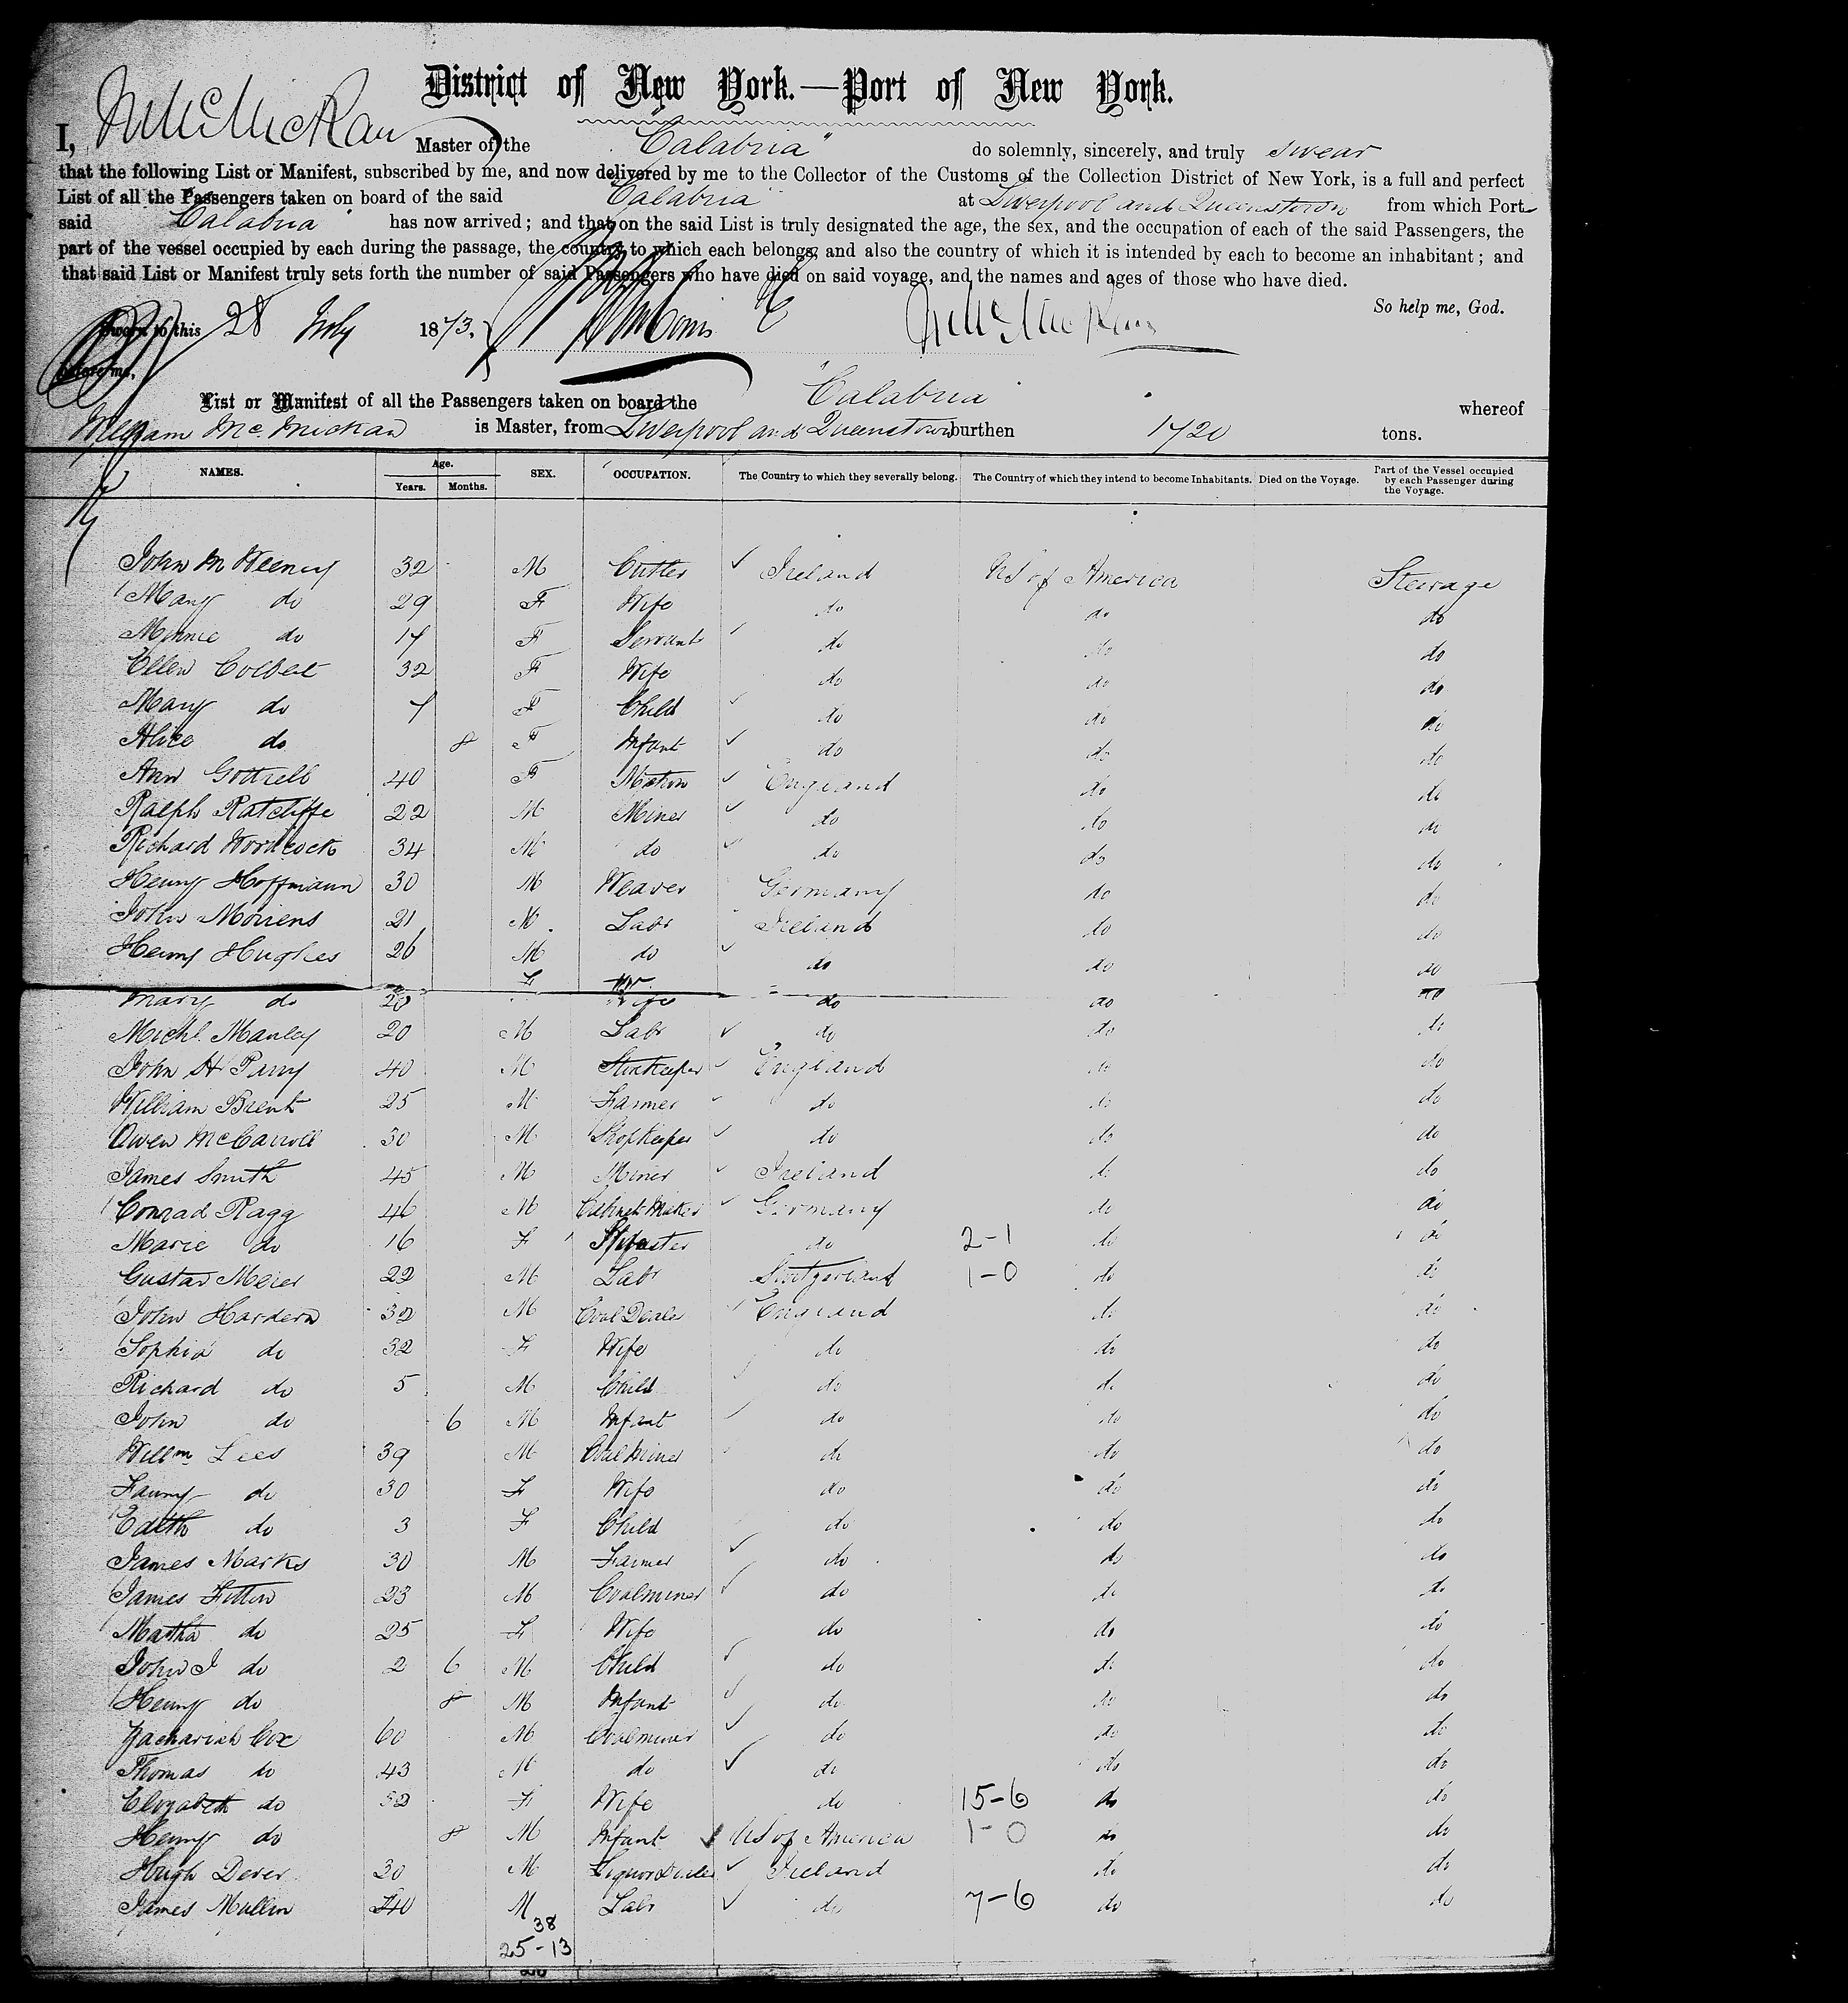 District of New York.—Port of New York.
I, Master of the "Calabria" do solemnly, sincerely, and truly swear
that the following List or Manifest, subscribed by me, and now delivered by me to the Collector of the Customs of the Collection District of New York, is a full and perfect
List of all the Passengers taken on board of the said Calabria at Liverpool and Queenstown from which Port
said Calabria has now arrived; and that on the said List is truly designated the age, the sex, and the occupation of each of the said Passengers, the
part of the vessel occupied by each during the passage, the country to which each belongs, and also the country of which it is intended by each to become an inhabitant; and
that said List or Manifest truly sets forth the number of said Passengers who have died on said voyage, and the names and ages of those who have died.
So help me, God.
Sworn to this 28 July 1873.
before me,
List or Manifest of all the Passengers taken on board the "Calabria" whereof
William Mc.Mickan is Master, from Liverpool and Queenstown burthen 1720 tons.
NAMES. Age. Years. Months. SEX. OCCUPATION. The Country to which they severally belong. The Country of which they intend to become Inhabitants. Died on the Voyage. Part of the Vessel occupied by each Passenger during the Voyage.
John M Weeney 32 M Cutler Ireland US of America Steerage
Mary do 29 F Wife do do do
Minnie do 17 F Servant do do do
Ellen Colbert 32 F Wife do do do
Mary do 7 F Child do do do
Alice do 8 F Infant do do do
Ann Gottrell 40 F Matron England do do
Ralph Ratcliffe 22 M Miner do do do
Richard Woodcock 34 M do do do do
Henry Hoffmann 30 M Weaver Germany do do
John 21 M Labr Ireland do do
Henry Hughes 26 M do do do do
Mary do 20 F Wife do do do
Michl. Manley 20 M Labr do do do
John H Parry 40 M Storekeeper England do do
William Brent 25 M Farmer do do do
Owen McCarroll 30 M Shopkeeper do do do
James Smith 45 M Miner Ireland do do
Conrad Ragg 46 M Cabinet Maker Germany do do
Marie do 16 F Spinster do 2-1 do do
Gustav Meier 22 M Labr Switzerland 1-0 do do
John Hardern 32 M Coal Dealer England do do
Sophia do 32 F Wife do do do
Richard do 5 M Child do do do
John do 6 M Infant do do do
Willm Lees 39 M Coal Miner do do do
Fanny do 30 F Wife do do do
Edith do 3 F Child do do do
James Marks 30 M Farmer do do do
James Fitton 23 M Coalminer do do do
Martha do 25 F Wife do do do
John J do 2 6 M Child do do do
Henry do 8 M Infant do do do
Zachariah Cox 60 M Coalminer do do do
Thomas do 43 M do do do do
Elizabeth do F Wife do 15-6 do do
Henry do 8 M Infant US of America 1-0 do do
Hugh Dever 30 M Liquor Dealer Ireland do do
James Mullen 40 M Labr do 7-6 do do
38
25-13